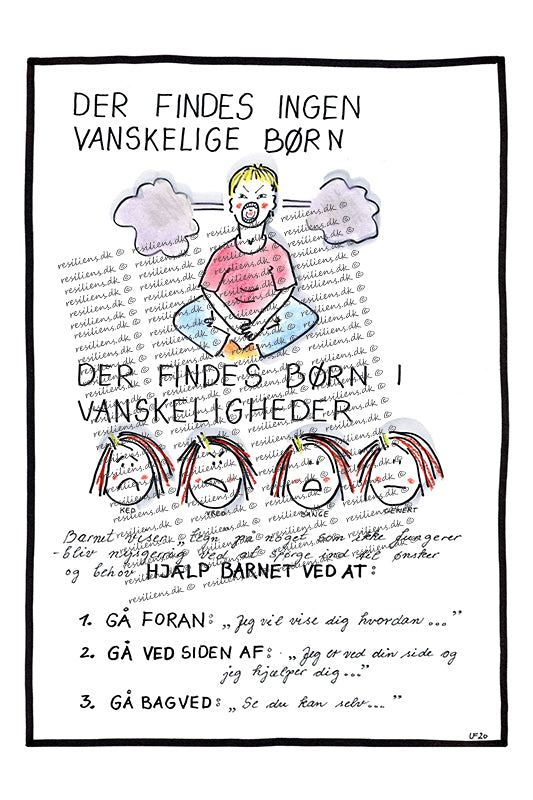 DER FINDES INGEN
VANSKELIGE BØRN
DER FINDES BØRN I
VANSKELIGHEDER
KED
VRED
BANGE
Barnet viser „tegn" på noget som ikke fungerer
- bliv nysgerrig ved at spørge ind til ønsker
og behov. HJÆLP BARNET VED AT:
1. GÅ FORAN: „Jeg vil vise dig hvordan ..."
2. GÅ VED SIDEN AF: „Jeg er ved din side og
jeg hjælper dig..."
3. GÅ BAGVED: „Se du kan selv..."
resiliens.dk ©
UF20